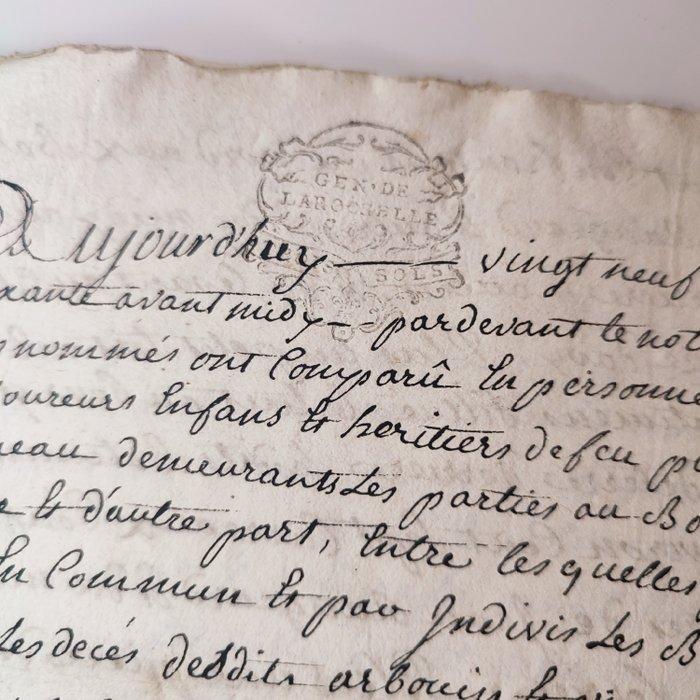 GEN. DE
LAROCHELLE
SOLS
Aujourd'huy — vingt neuf
xante avant midy — pardevant le not
nommés ont Comparû En personne
Enfans Et heritiers de feu
demeurants Les parties au
Et d'autre part, Entre lesquelles
En Commun Et par Indivis Les B
Les decés desdits